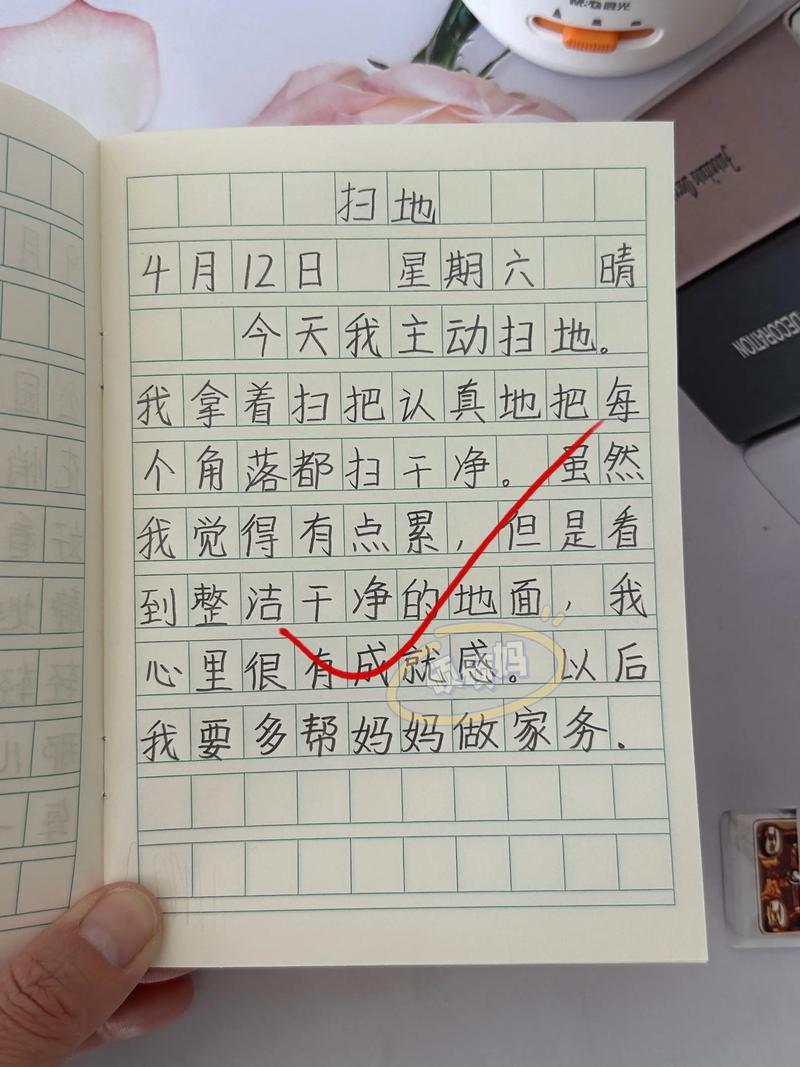 扫地
4月12日 星期六 晴
今天我主动扫地。
我拿着扫把认真地把每
个角落都扫干净。虽然
我觉得有点累，但是看
到整洁干净的地面，我
心里很有成就感。以后
我要多帮妈妈做家务.
DECORATION